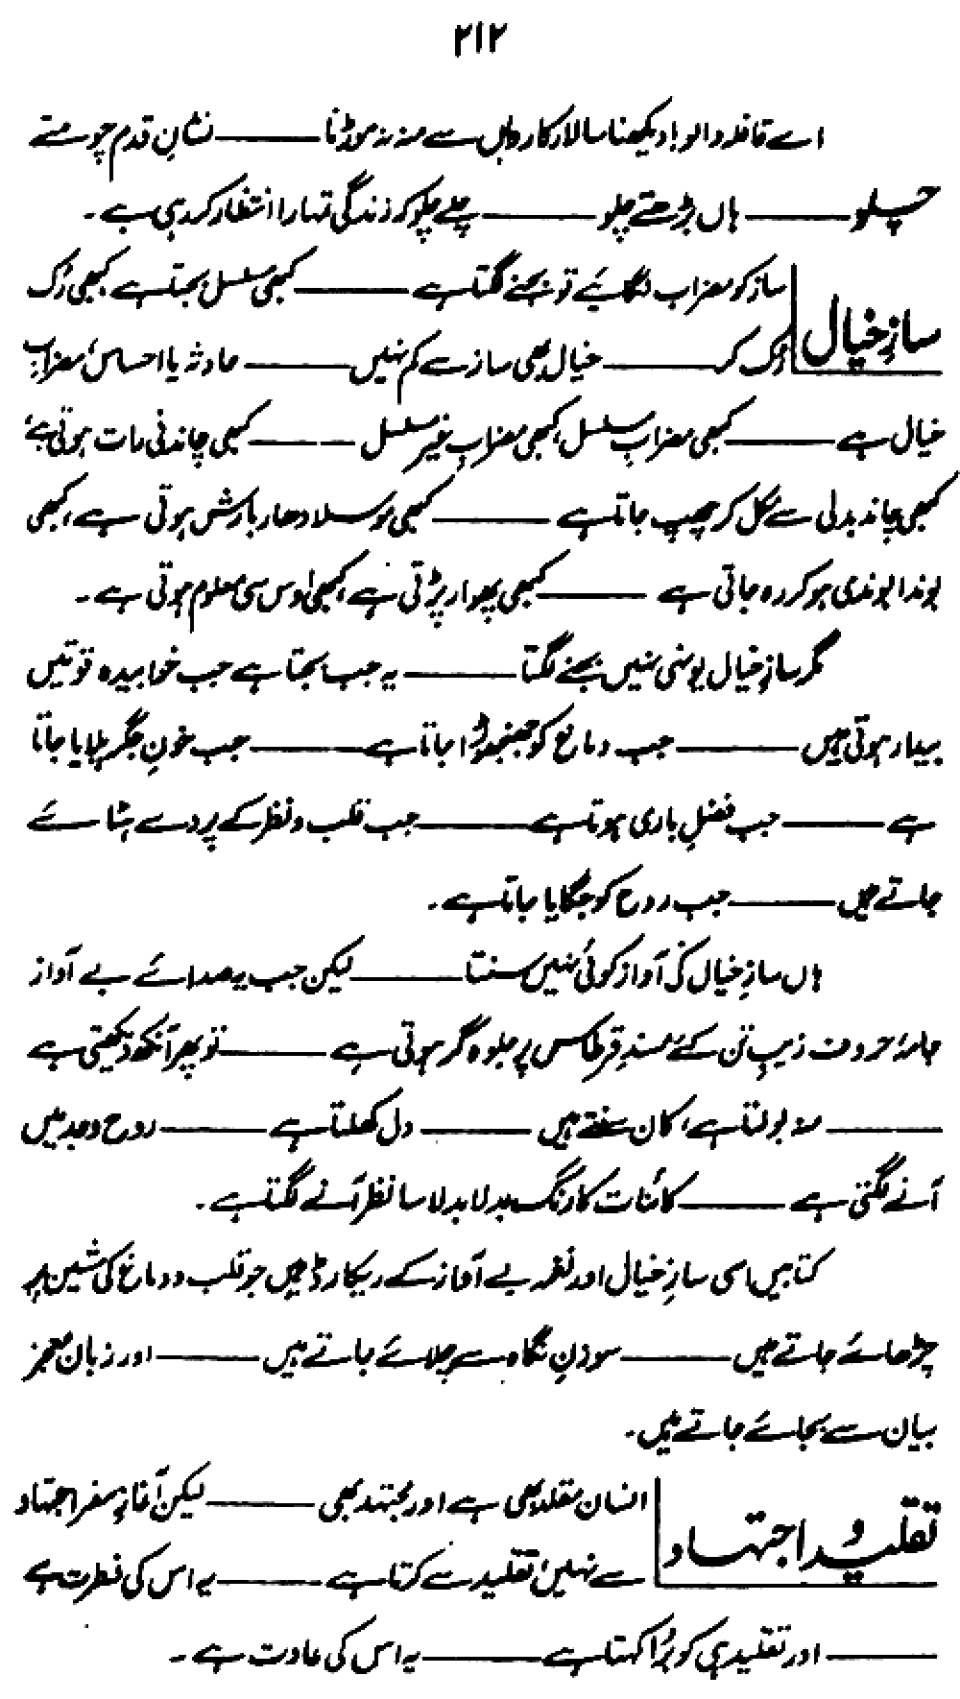 ۲۱۲
اے قافلہ والو! دیکھنا سالارِ کارواں سے منہ نہ موڑنا ——— نشانِ قدم چومتے
چلو ——— ہاں بڑھتے چلو ——— چلے چلو کہ زندگی تمہارا انتظار کر رہی ہے۔
سازِ خیال
ساز کو مضراب لگائیے تو بجنے لگتا ہے ——— کبھی مسلسل بجتا ہے کبھی رُک
رُک کر ——— خیال بھی ساز سے کم نہیں ——— حادثہ یا احساس، مضرابِ
خیال ہے ——— کبھی مضرابِ مسلسل، کبھی مضرابِ غیر مسلسل ——— کبھی چاندنی رات ہوتی ہے،
کبھی چاند بدلی سے نکل کر چھپ جاتا ہے ——— کبھی موسلا دھار بارش ہوتی ہے، کبھی
بوندا بوندی ہو کر رہ جاتی ہے ——— کبھی پھوار پڑتی ہے، کبھی اوس سی معلوم ہوتی ہے۔
مگر سازِ خیال یونہی نہیں بجنے لگتا ——— یہ جب بجتا ہے جب خوابیدہ قوتیں
بیدار ہوتی ہیں ——— جب دماغ کو جھنجھوڑا جاتا ہے ——— جب خونِ جگر پلایا جاتا
ہے ——— جب فضلِ باری ہوتا ہے ——— جب قلب و نظر کے پردے ہٹائے
جاتے ہیں ——— جب روح کو جگایا جاتا ہے۔
ہاں سازِ خیال کی آواز کوئی نہیں سنتا ——— لیکن جب یہ صدائے بے آواز
جامۂ حروف زیبِ تن کئے مسندِ قرطاس پر جلوہ گر ہوتی ہے ——— تو پھر آنکھ دیکھتی ہے
——— منہ بولتا ہے، کان سنتے ہیں ——— دل کھلتا ہے ——— روح وجد میں
آنے لگتی ہے ——— کائنات کا رنگ بدلا بدلا سا نظر آنے لگتا ہے۔
کتابیں اسی سازِ خیال اور نغمہ بے آواز کے ریکارڈ ہیں جو قلب و دماغ کی مشین پر
چڑھائے جاتے ہیں ——— سوزنِ نگاہ سے چلائے جاتے ہیں ——— اور زبان معجز
بیان سے بجائے جاتے ہیں۔
تقلید و اجتہاد
انسان مقلد بھی ہے اور مجتہد بھی ——— لیکن آغازِ سفر اجتہاد
سے نہیں، تقلید سے کرتا ہے ——— یہ اس کی فطرت ہے
——— اور تقلید ہی کو بُرا کہتا ہے ——— یہ اس کی عادت ہے۔